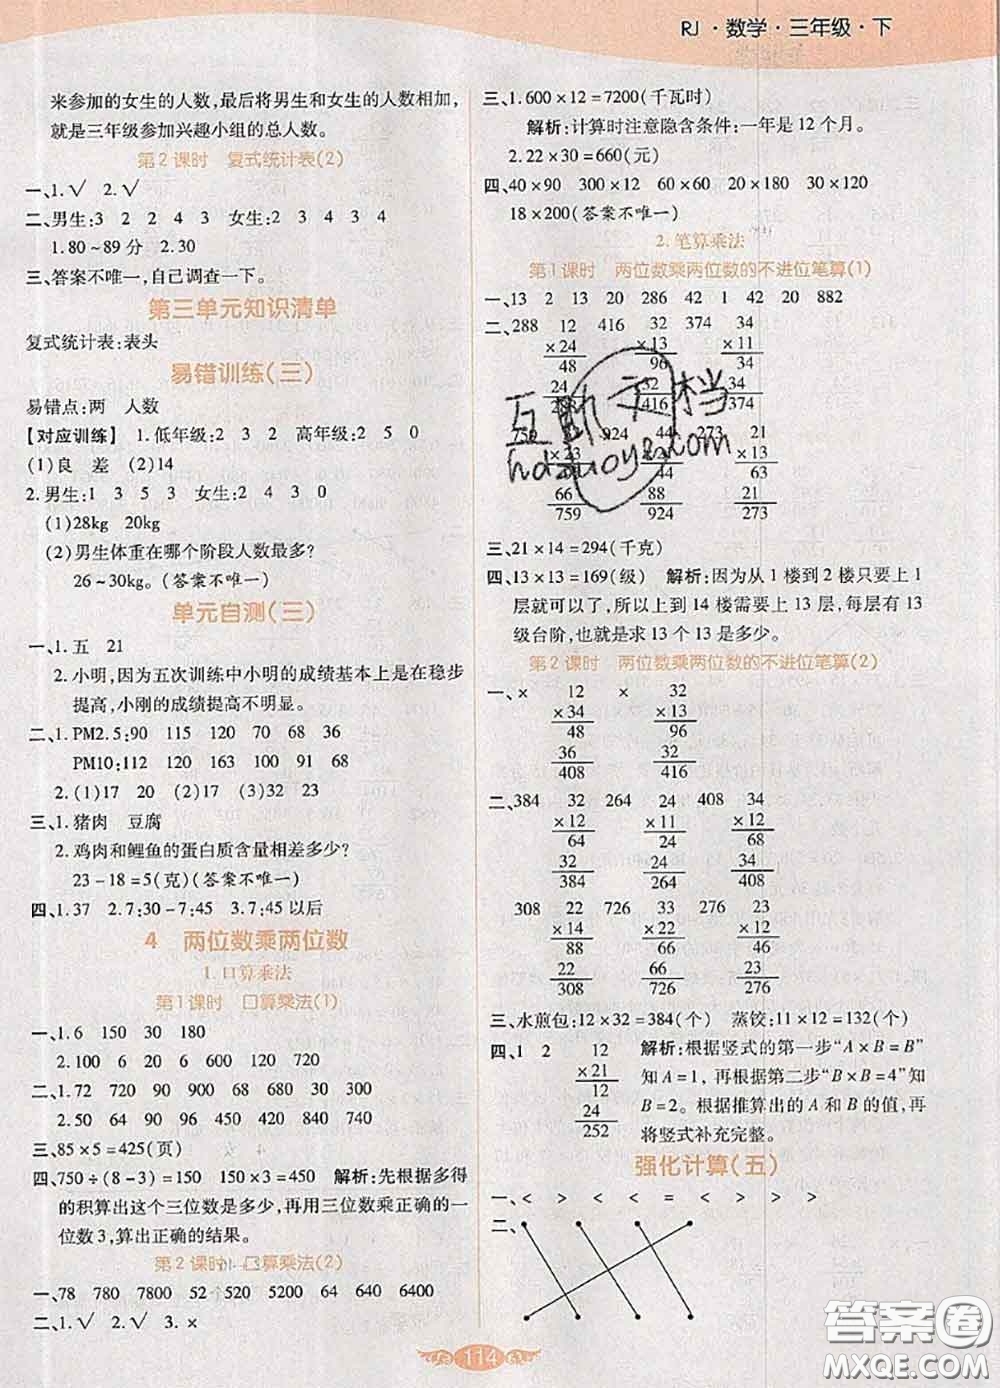 RJ·数学·三年级·下
来参加的女生的人数,最后将男生和女生的人数相加,
就是三年级参加兴趣小组的总人数。
第2课时 复式统计表(2)
一、1.√ 2.√
二、男生:3 2 2 4 3 女生:2 3 4 3 4
1.80~89分 2.30
三、答案不唯一,自己调查一下。
第三单元知识清单
复式统计表:表头
易错训练(三)
易错点:两 人数
【对应训练】 1.低年级:2 3 2 高年级:2 5 0
(1)良 差 (2)14
2.男生:1 3 5 3 女生:2 4 3 0
(1)28kg 20kg
(2)男生体重在哪个阶段人数最多?
26~30kg。(答案不唯一)
单元自测(三)
一、1.五 21
2.小明,因为五次训练中小明的成绩基本上是在稳步
提高,小刚的成绩提高不明显。
二、1.PM2.5:90 115 120 70 68 36
PM10:112 120 163 100 91 68
2.(1)17 20 (2)17 (3)32 23
三、1.猪肉 豆腐
2.鸡肉和鲤鱼的蛋白质含量相差多少?
23-18=5(克)(答案不唯一)
四、1.37 2.7:30-7:45 3.7:45以后
4 两位数乘两位数
1.口算乘法
第1课时 口算乘法(1)
一、1.6 150 30 180
2.100 6 20 6 600 120 720
二、1.72 720 90 900 68 680 92 920
2.50 64 96 90 450 420 840 740
三、85×5=425(页)
四、750÷(8-3)=150 150×3=450 解析:先根据多得
的积算出这个三位数是多少,再用三位数乘正确的一
位数3,算出正确的结果。
第2课时 口算乘法(2)
一、78 780 7800 52 520 5200 64 640 6400
二、1.√ 2.√ 3.×
三、1.600×12=7200(千瓦时)
解析:计算时注意隐含条件:一年是12个月。
2.22×30=660(元)
四、40×90 300×12 60×60 20×180 30×120
18×200(答案不唯一)
2.笔算乘法
第1课时 两位数乘两位数的不进位笔算(1)
一、13 2 13 20 286 42 1 42 20 882
二、288 12 416 32 374 34
×24 ×13 ×11
48 96 34
24 32 34
288 416 374
759 924 44 273 21
×23 ×13
44 63
66 88 21
759 924 273
三、21×14=294(千克)
四、13×13=169(级) 解析:因为从1楼到2楼只要上1
层就可以了,所以上到14楼需要上13层,每层有13
级台阶,也就是求13个13是多少。
第2课时 两位数乘两位数的不进位笔算(2)
一、× 12 × 32
×34 ×13
48 96
36 32
408 416
二、384 32 264 24 408 34
×12 ×11 ×12
64 24 68
32 24 34
384 264 408
308 22 726 33 276 23
×14 ×22 ×12
88 66 46
22 66 23
308 726 276
三、水煎包:12×32=384(个) 蒸饺:11×12=132(个)
四、1 2 12 解析:根据竖式的第一步“A×B=B”
×21 知A=1,再根据第二步“B×B=4”可知
12 B=2。根据推算出的A和B的值,再
24 将竖式补充完整。
252
强化计算(五)
一、< > < < = < > > >
二、
114
互助文档
hdzuoye.com
答案圈
MXQE.COM